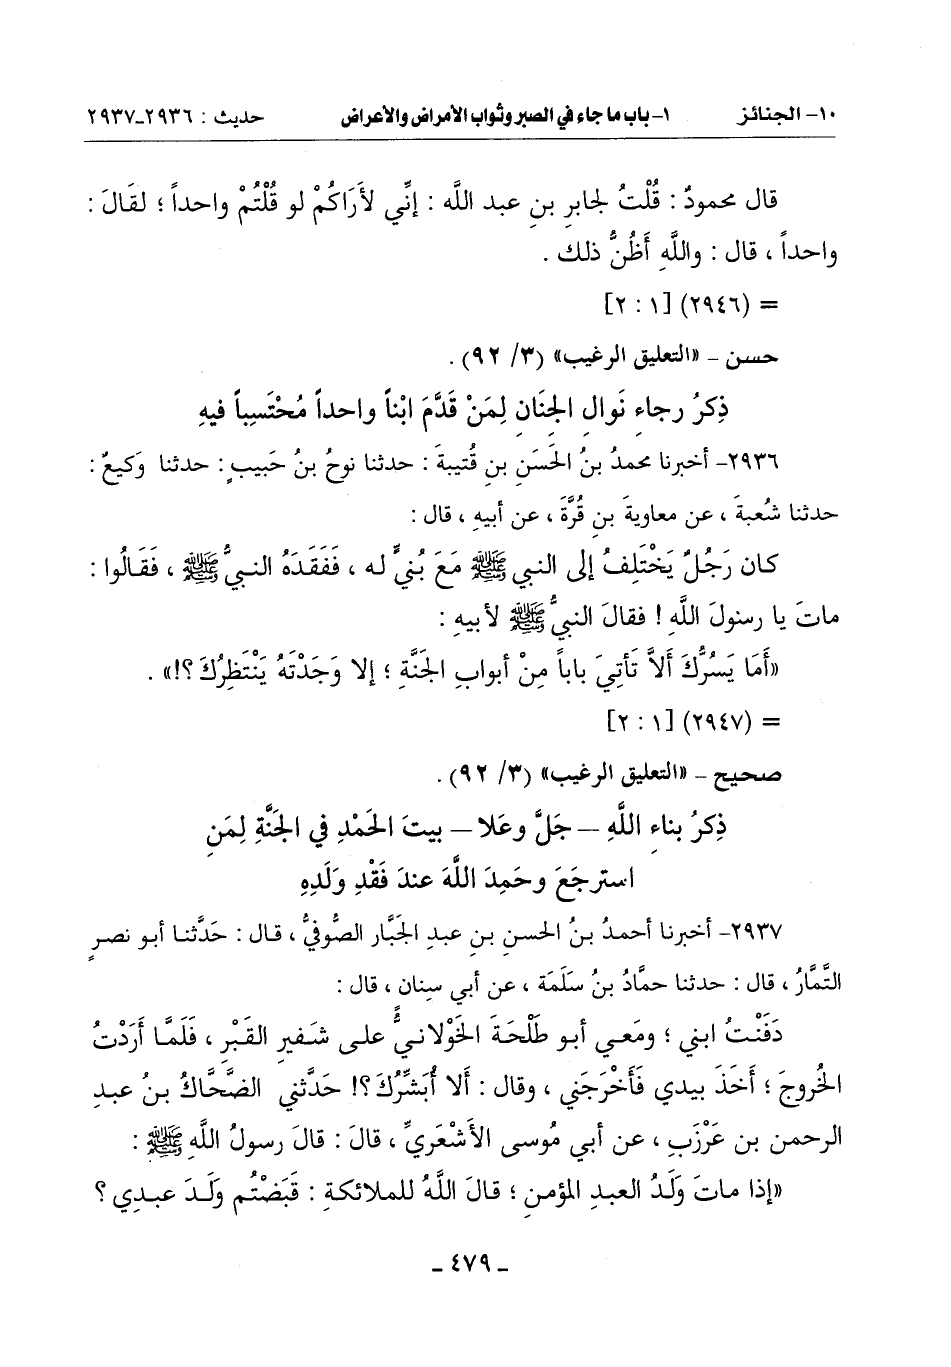 ١٠- الجنائز ١- باب ما جاء في الصبر وثواب الأمراض والأعراض حديث : ٢٩٣٦ـ٢٩٣٧
قال محمودٌ : قُلْتُ لجابرِ بنِ عبد اللَّه : إنِّي لأَرَاكُمْ لو قُلْتُمْ واحداً ؛ لقَالَ :
واحداً ، قال : واللَّهِ أَظُنُّ ذلك .
= (٢٩٤٦) [١ : ٢]
حسن ـ «التعليق الرغيب» (٣/ ٩٢) .
ذِكرُ رجاءِ نَوالِ الجِنَانِ لِمَنْ قَدَّمَ ابْناً واحداً مُحْتَسِباً فيهِ
٢٩٣٦- أخبرنا محمدُ بنُ الحَسَنِ بنِ قُتيبةَ : حدثنا نوحُ بنُ حَبيبٍ : حدثنا وَكيعٌ :
حدثنا شُعبةَ ، عن معاويةَ بنِ قُرَّةَ ، عن أبيهِ ، قال :
كان رَجُلٌ يَخْتَلِفُ إلى النبيِ ﷺ مَعَ بُنيٍّ له ، فَفَقَدَهُ النبيُّ ﷺ ، فقَالُوا :
ماتَ يا رسولَ اللَّهِ ! فقالَ النبيُّ ﷺ لأبيهِ :
«أَمَا يَسُرُّكَ ألاَّ تَأتِيَ باباً مِنْ أبوابِ الجَنَّةِ ؛ إلا وَجَدْتَهُ يَنْتَظِرُكَ ؟!» .
= (٢٩٤٧) [١ : ٢]
صحيح ـ «التعليق الرغيب» (٣/ ٩٢) .
ذِكرُ بناءِ اللَّهِ ـ جَلَّ وعَلا ـ بيتَ الحَمْدِ في الجَنَّةِ لِمَنِ
استرجَعَ وحَمِدَ اللَّهَ عندَ فَقْدِ ولَدِهِ
٢٩٣٧- أخبرنا أحمدُ بنُ الحسنِ بنِ عبدِ الجَبَّارِ الصُّوفيُّ ، قال : حَدَّثنا أبو نصرٍ
التَّمَّارُ ، قال : حدثنا حمَّادُ بنُ سَلَمَة ، عن أبي سِنان ، قال :
دَفَنْتُ ابني ؛ ومَعي أبو طَلْحَةَ الخَوْلانيُّ على شَفيرِ القَبْرِ ، فَلَمَّا أَرَدْتُ
الخُروجَ ؛ أَخَذَ بيدي فَأَخْرَجَني ، وقال : أَلا أُبَشِّرُكَ ؟! حَدَّثني الضَّحَّاكُ بنُ عبدِ
الرحمنِ بنِ عَرْزَبٍ ، عن أبي مُوسى الأَشْعَريِّ ، قالَ : قالَ رسولُ اللَّهِ ﷺ :
«إذا ماتَ وَلَدُ العبدِ المؤمنِ ؛ قالَ اللَّهُ للملائكةِ : قَبَضْتُم وَلَدَ عبدِي ؟
ـ ٤٧٩ ـ